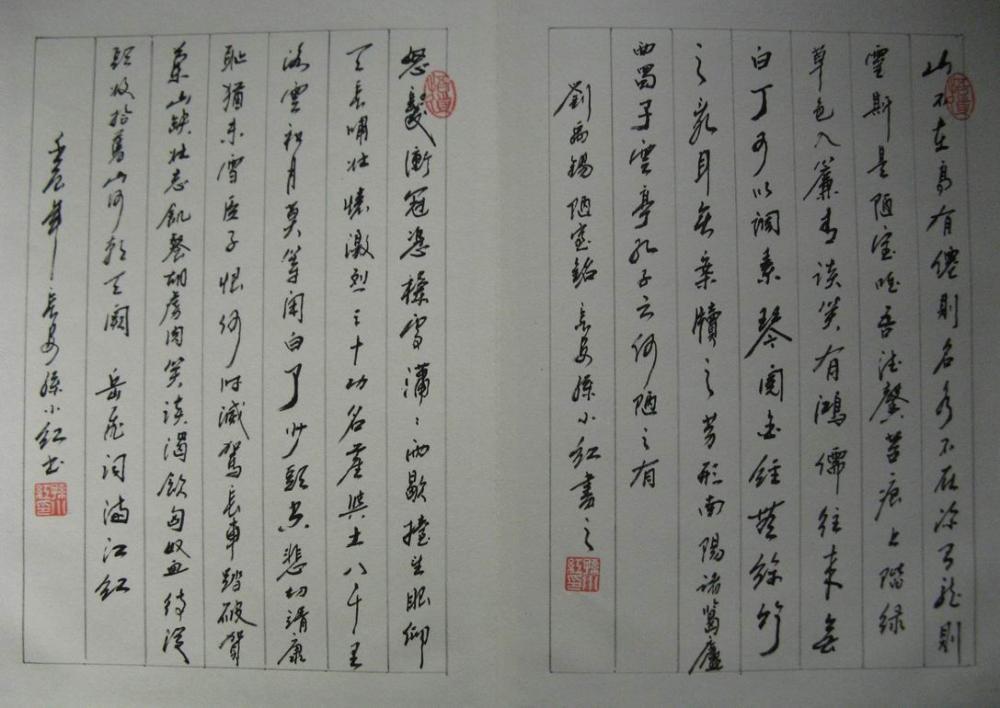 山不在高有僊則名水不在深有龍則
靈斯是陋室唯吾德馨苔痕上階緑
草色入簾青談笑有鴻儒往來無
白丁可以調素琴閱金經無絲竹
之亂耳無案牘之勞形南陽諸葛廬
西蜀子雲亭孔子云何陋之有
劉禹錫陋室銘 長安孫小紅書之
怒髮衝冠憑欄處瀟〻雨歇擡望眼仰
天長嘯壯懷激烈三十功名塵與土八千里
路雲和月莫等閑白了少頭空悲切靖康
恥猶未雪臣子恨何时滅駕長車踏破賀
蘭山缺壯志飢餐胡虜肉笑談渴飲匈奴血待從
頭收拾舊山河朝天闕 岳飛詞滿江紅
壬辰年長安孫小紅书